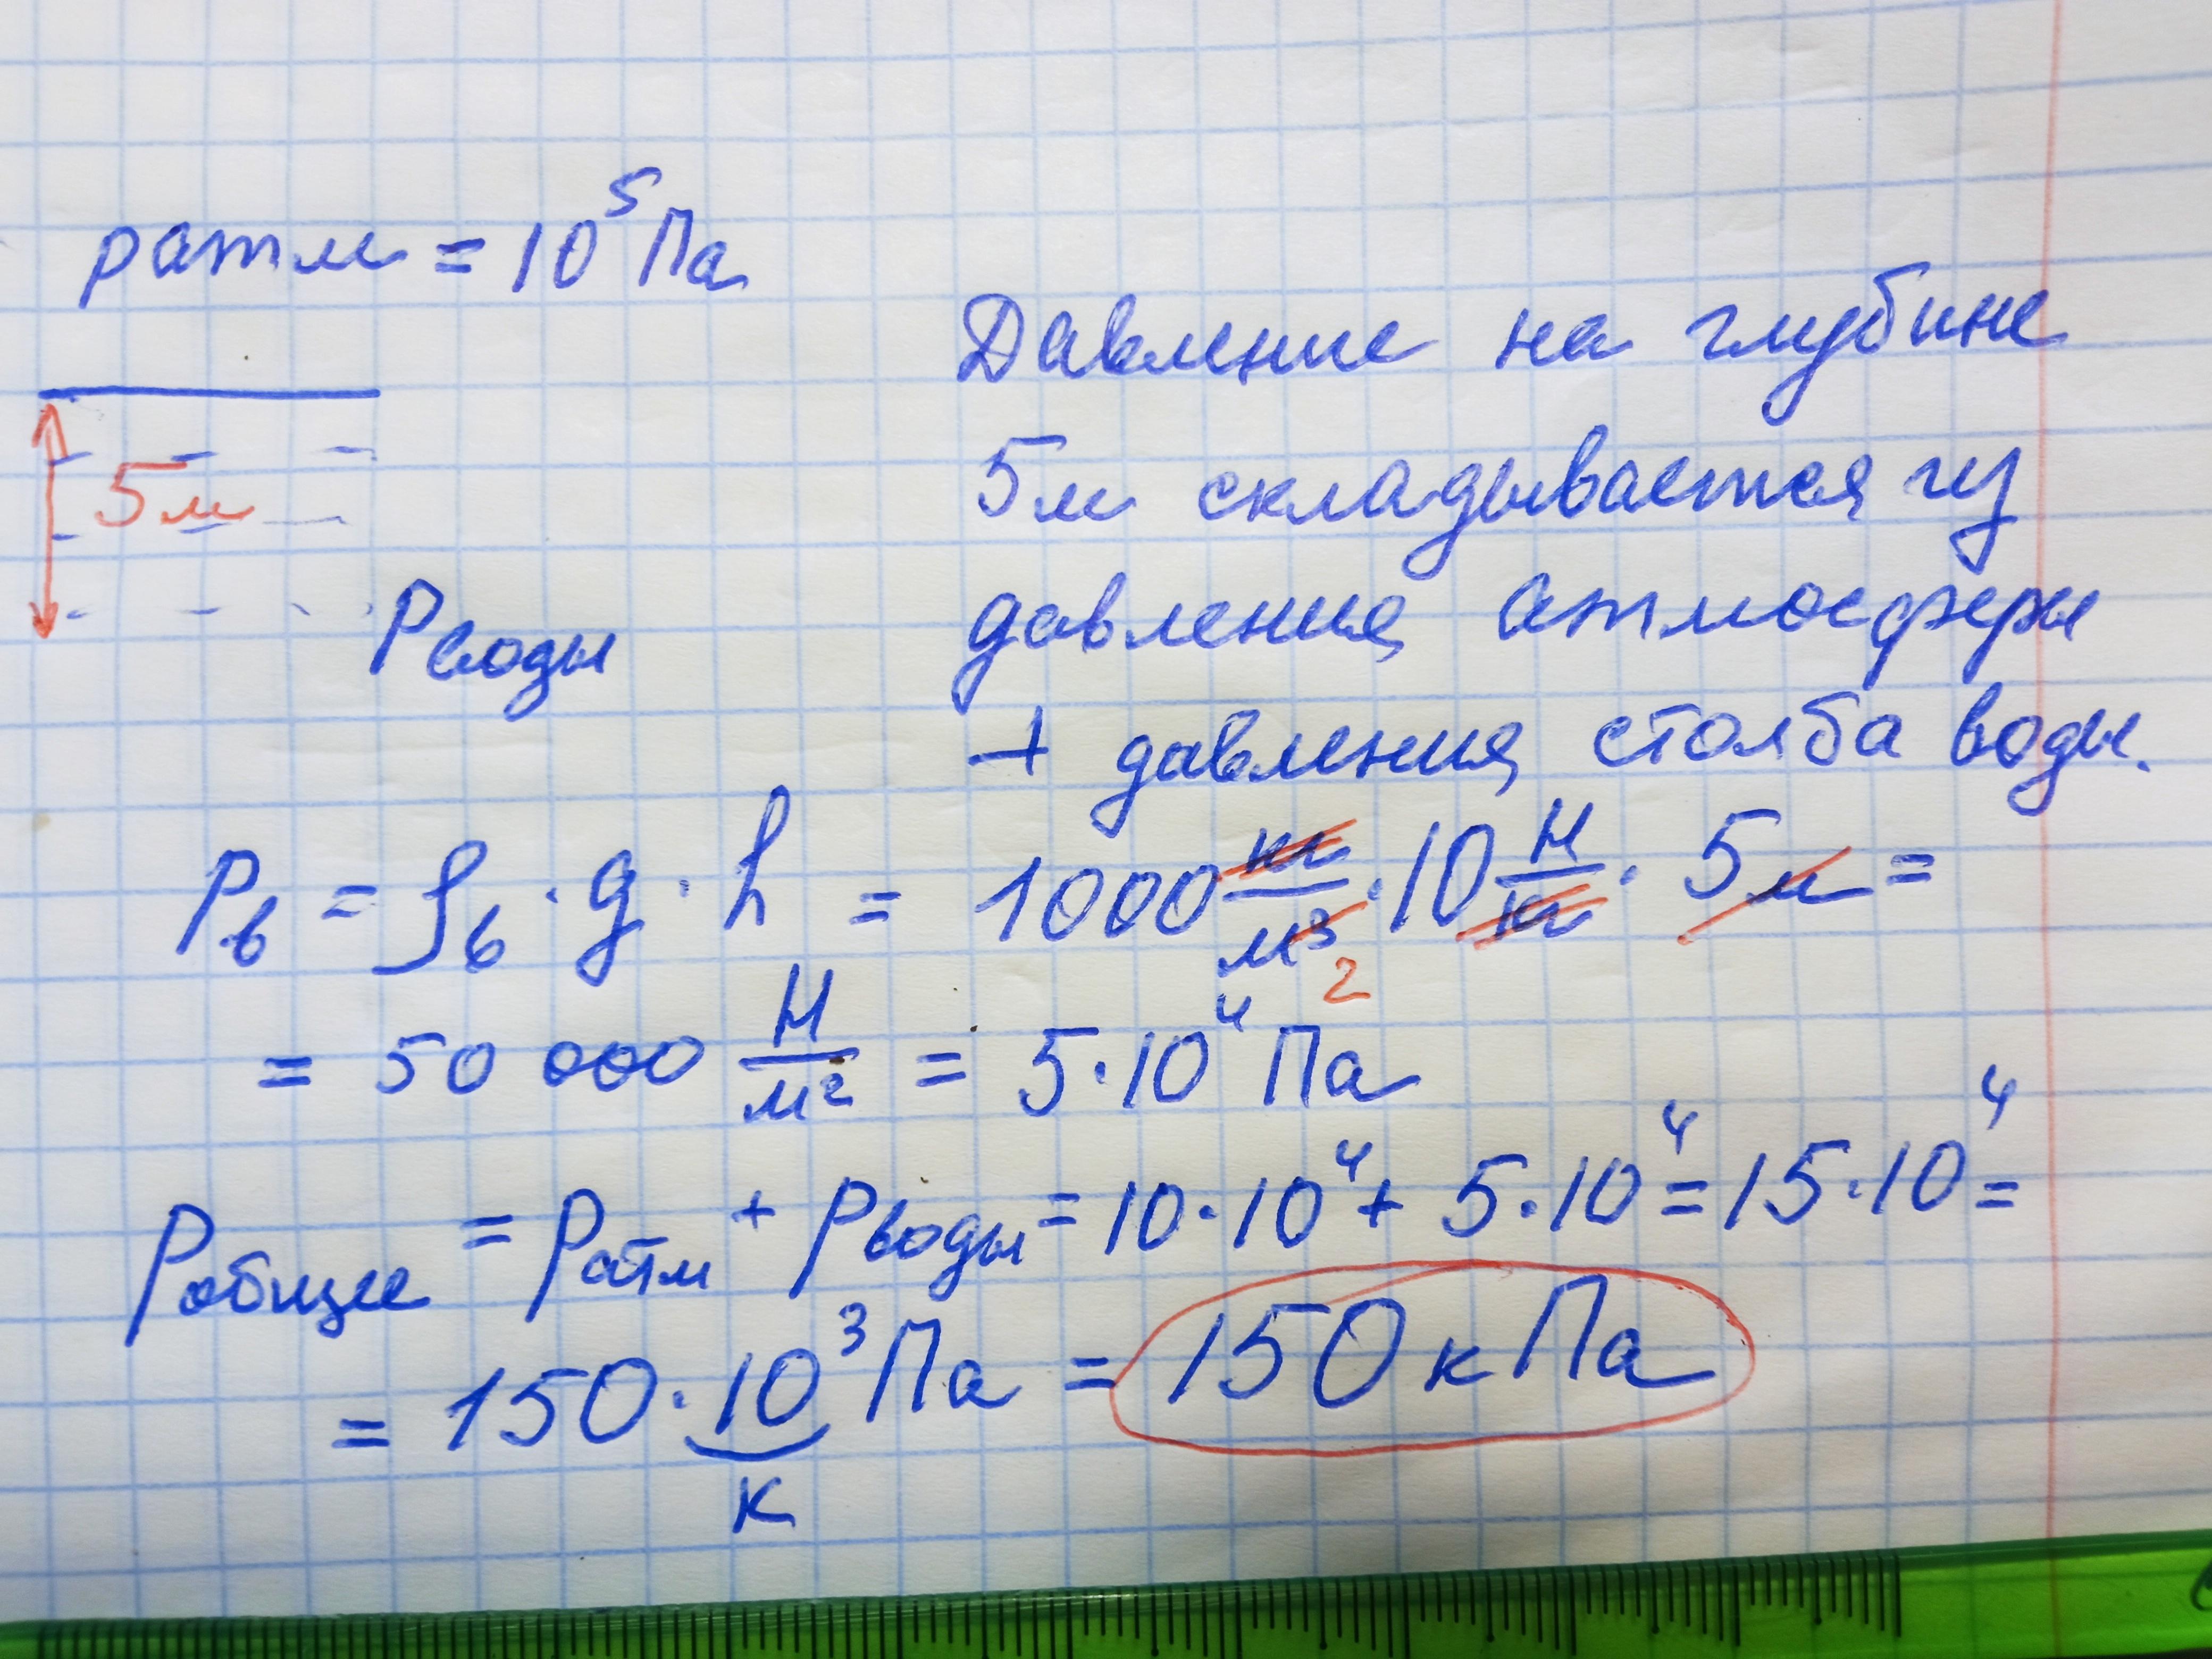 ратм = 10⁵ Па
Давление на глубине
5м складывается из
давления атмосферы
+ давления столба воды.
5м
Рводы
Рв = ρв · g · h = 1000 кг/м³ · 10 Н/кг · 5м =
2
= 50 000 Н/м² = 5·10⁴ Па
Робщее = Ратм + Рводы = 10·10⁴ + 5·10⁴ = 15·10⁴ =
= 150·10³ Па = 150 кПа
к